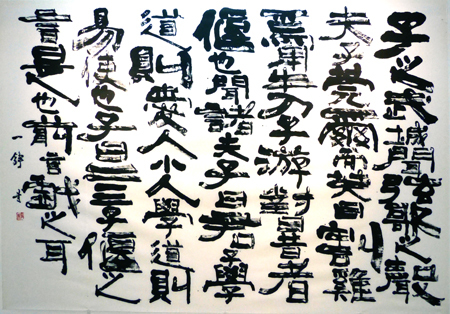 子之武城聞弦歌之聲
夫子莞爾而笑曰割雞
焉用牛刀子游對曰昔者
偃也聞諸夫子曰君子學
道則愛人小人學道則
易使也子曰二三子偃之
言是也前言戲之耳